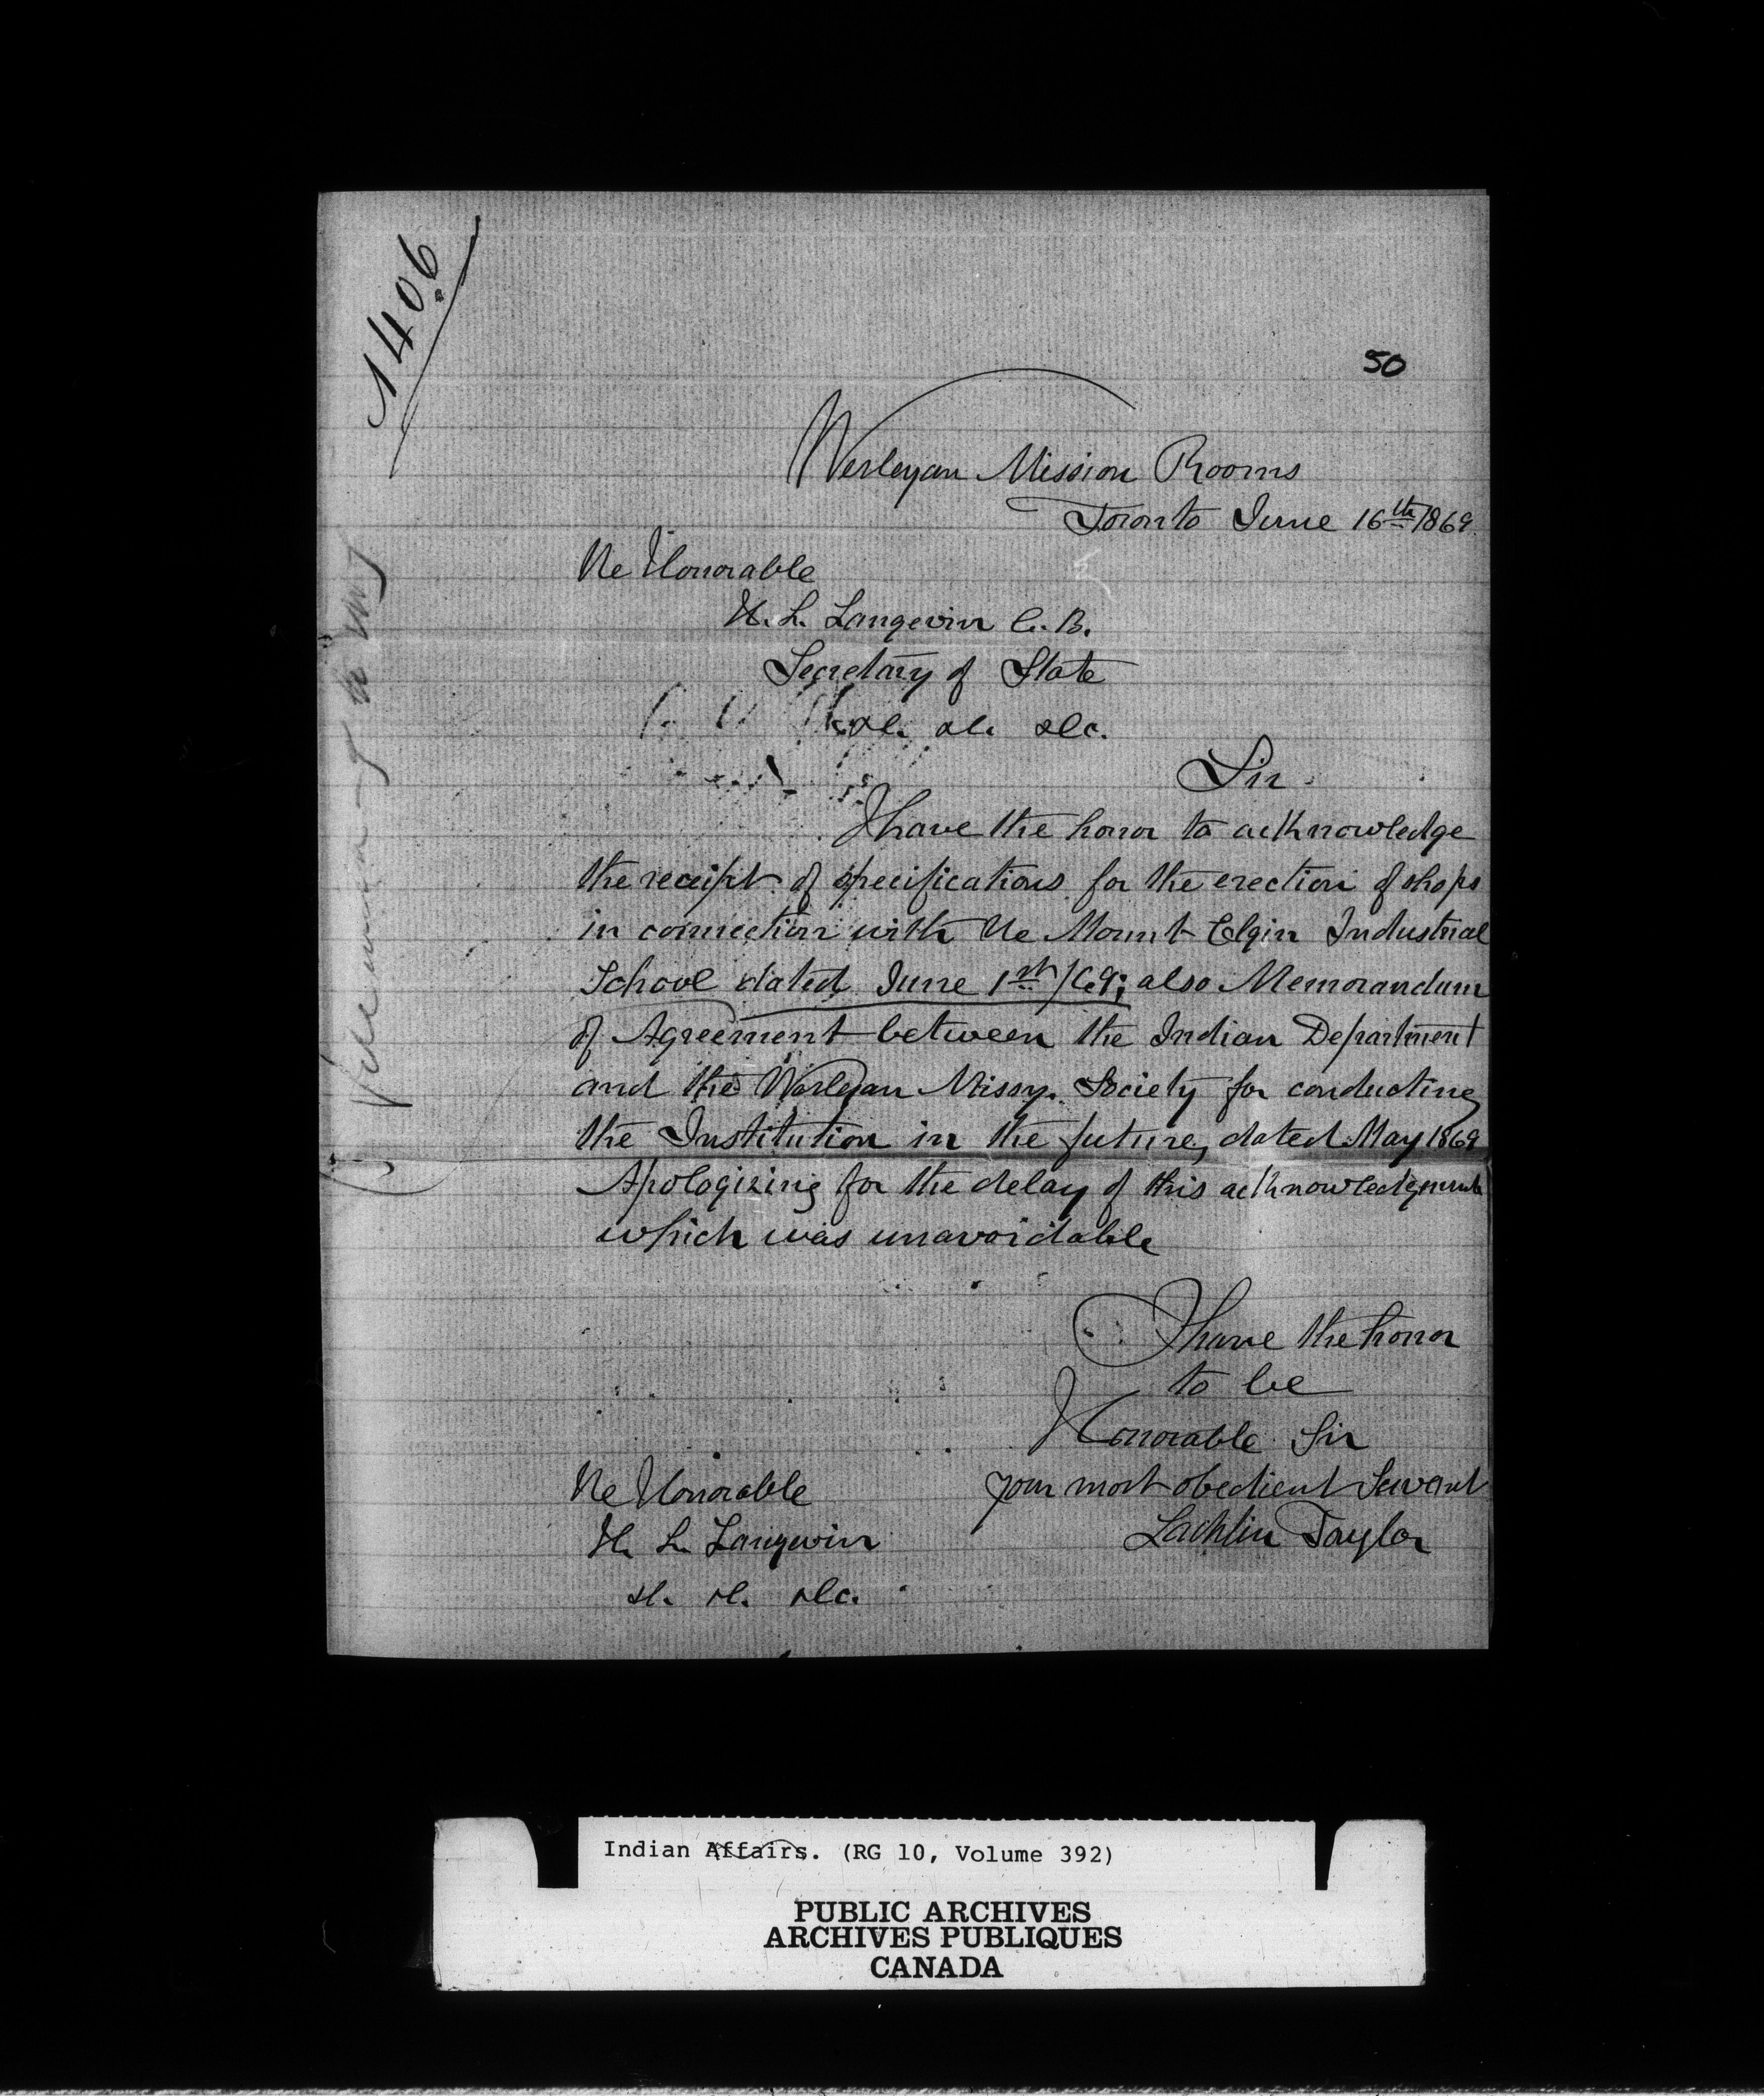 1406
50
Wesleyan Mission Rooms
Toronto June 16th 1869
The Honorable
H. L. Langevin C.B.
Secretary of State
&c. &c. &c.
Sir
I have the honor to acknowledge
the receipt of specifications for the erection of shops
in connection with the Mount Elgin Industrial
School dated June 1st/69; also Memorandum
of Agreement between the Indian Department
and the Wesleyan Missy. Society for conducting
the Institution in the future, dated May 1869
Apologizing for the delay of this acknowledgment
which was unavoidable
I have the honor
to be
Honorable Sir
your most obedient Servant
Lachlin Taylor
The Honorable
H. L. Langevin
&c. &c. &c.
Indian Affairs. (RG 10, Volume 392)
PUBLIC ARCHIVES
ARCHIVES PUBLIQUES
CANADA